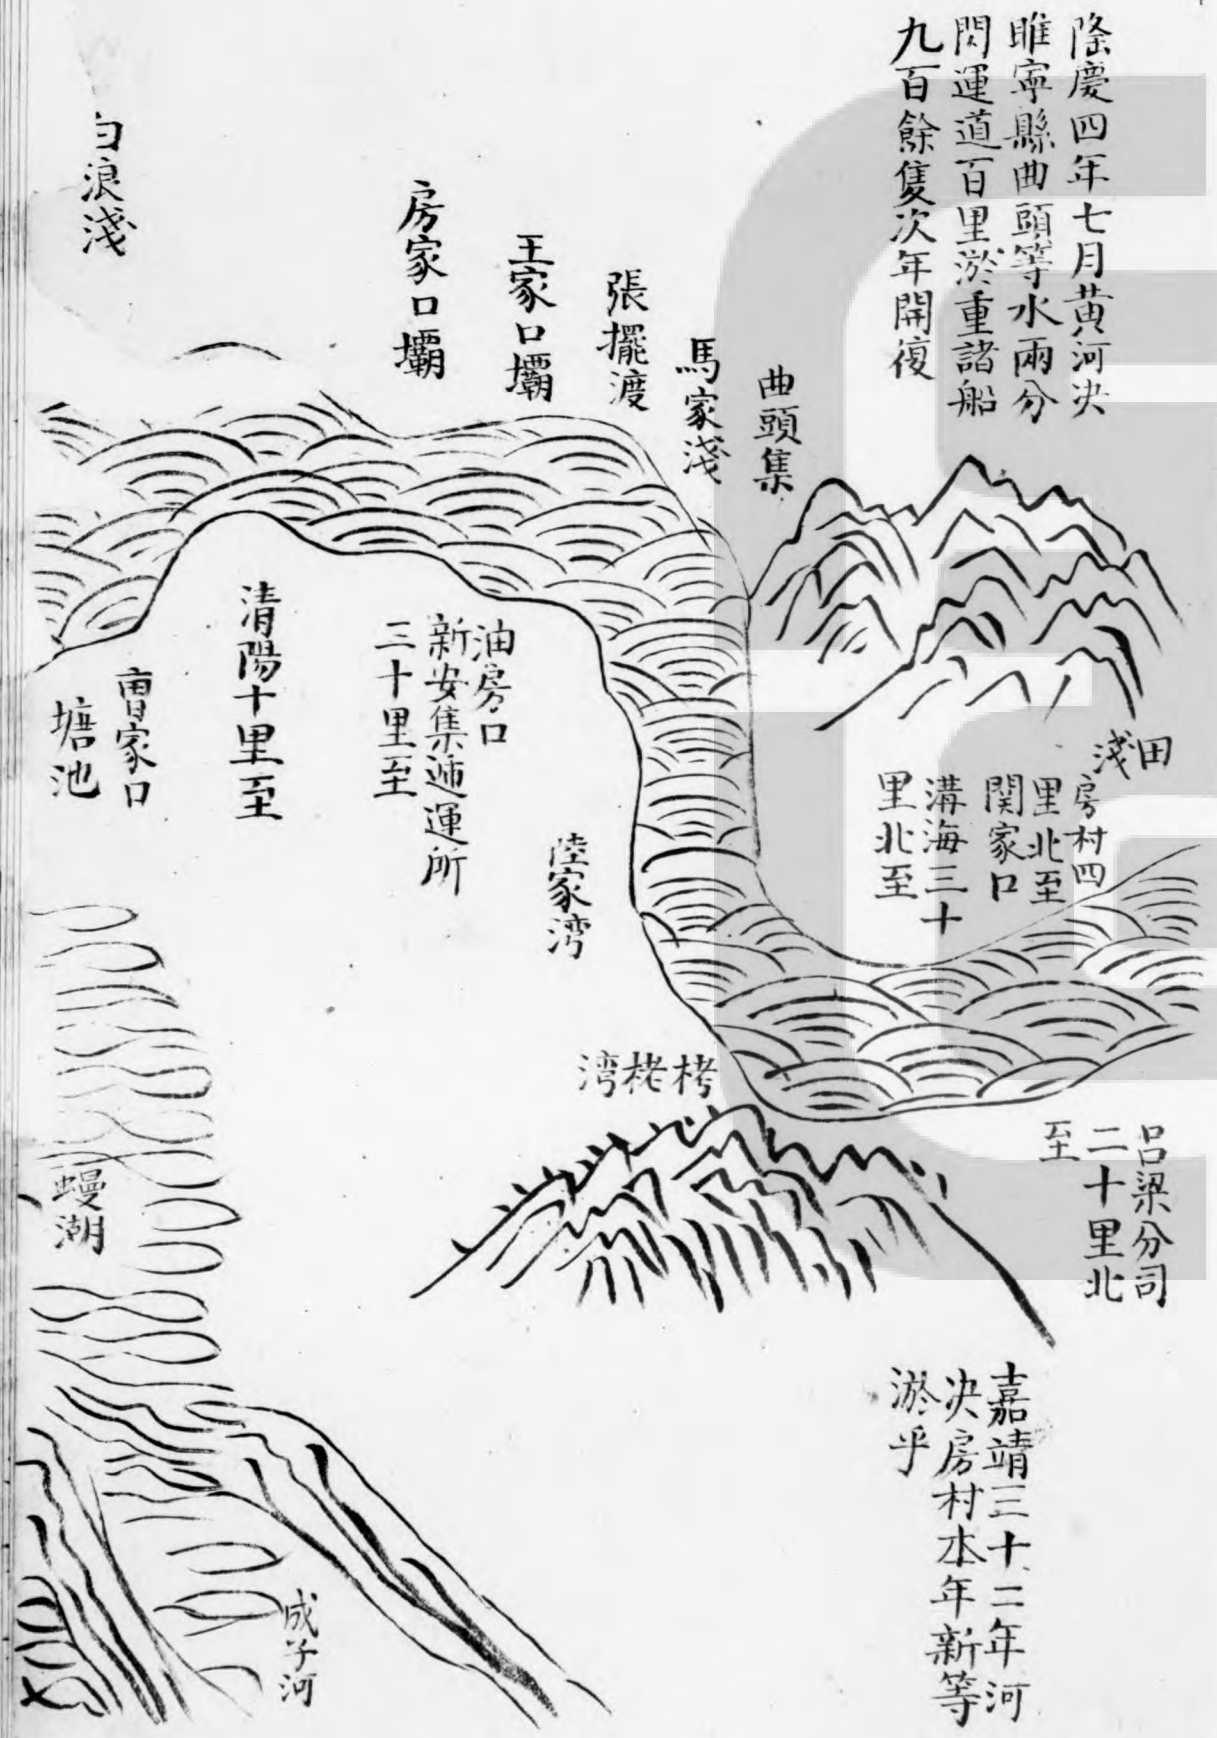 隆慶四年七月黄河决
睢寧縣曲頭等水兩分
閃運道百里淤重諸船
九百餘隻次年開復
曲頭集
馬家淺
張擺渡
王家口壩
房家口壩
白浪淺
田
淺
房村四
里北至
関家口
溝海三十
里北至
油房口
新安集逓運所
三十里至
清陽十里至
曺家口
塘池
陸家湾
栲栳湾
吕梁分司
二十里北
至
嘉靖三十二年河
决房村本年新等
淤乎
潮
成子河